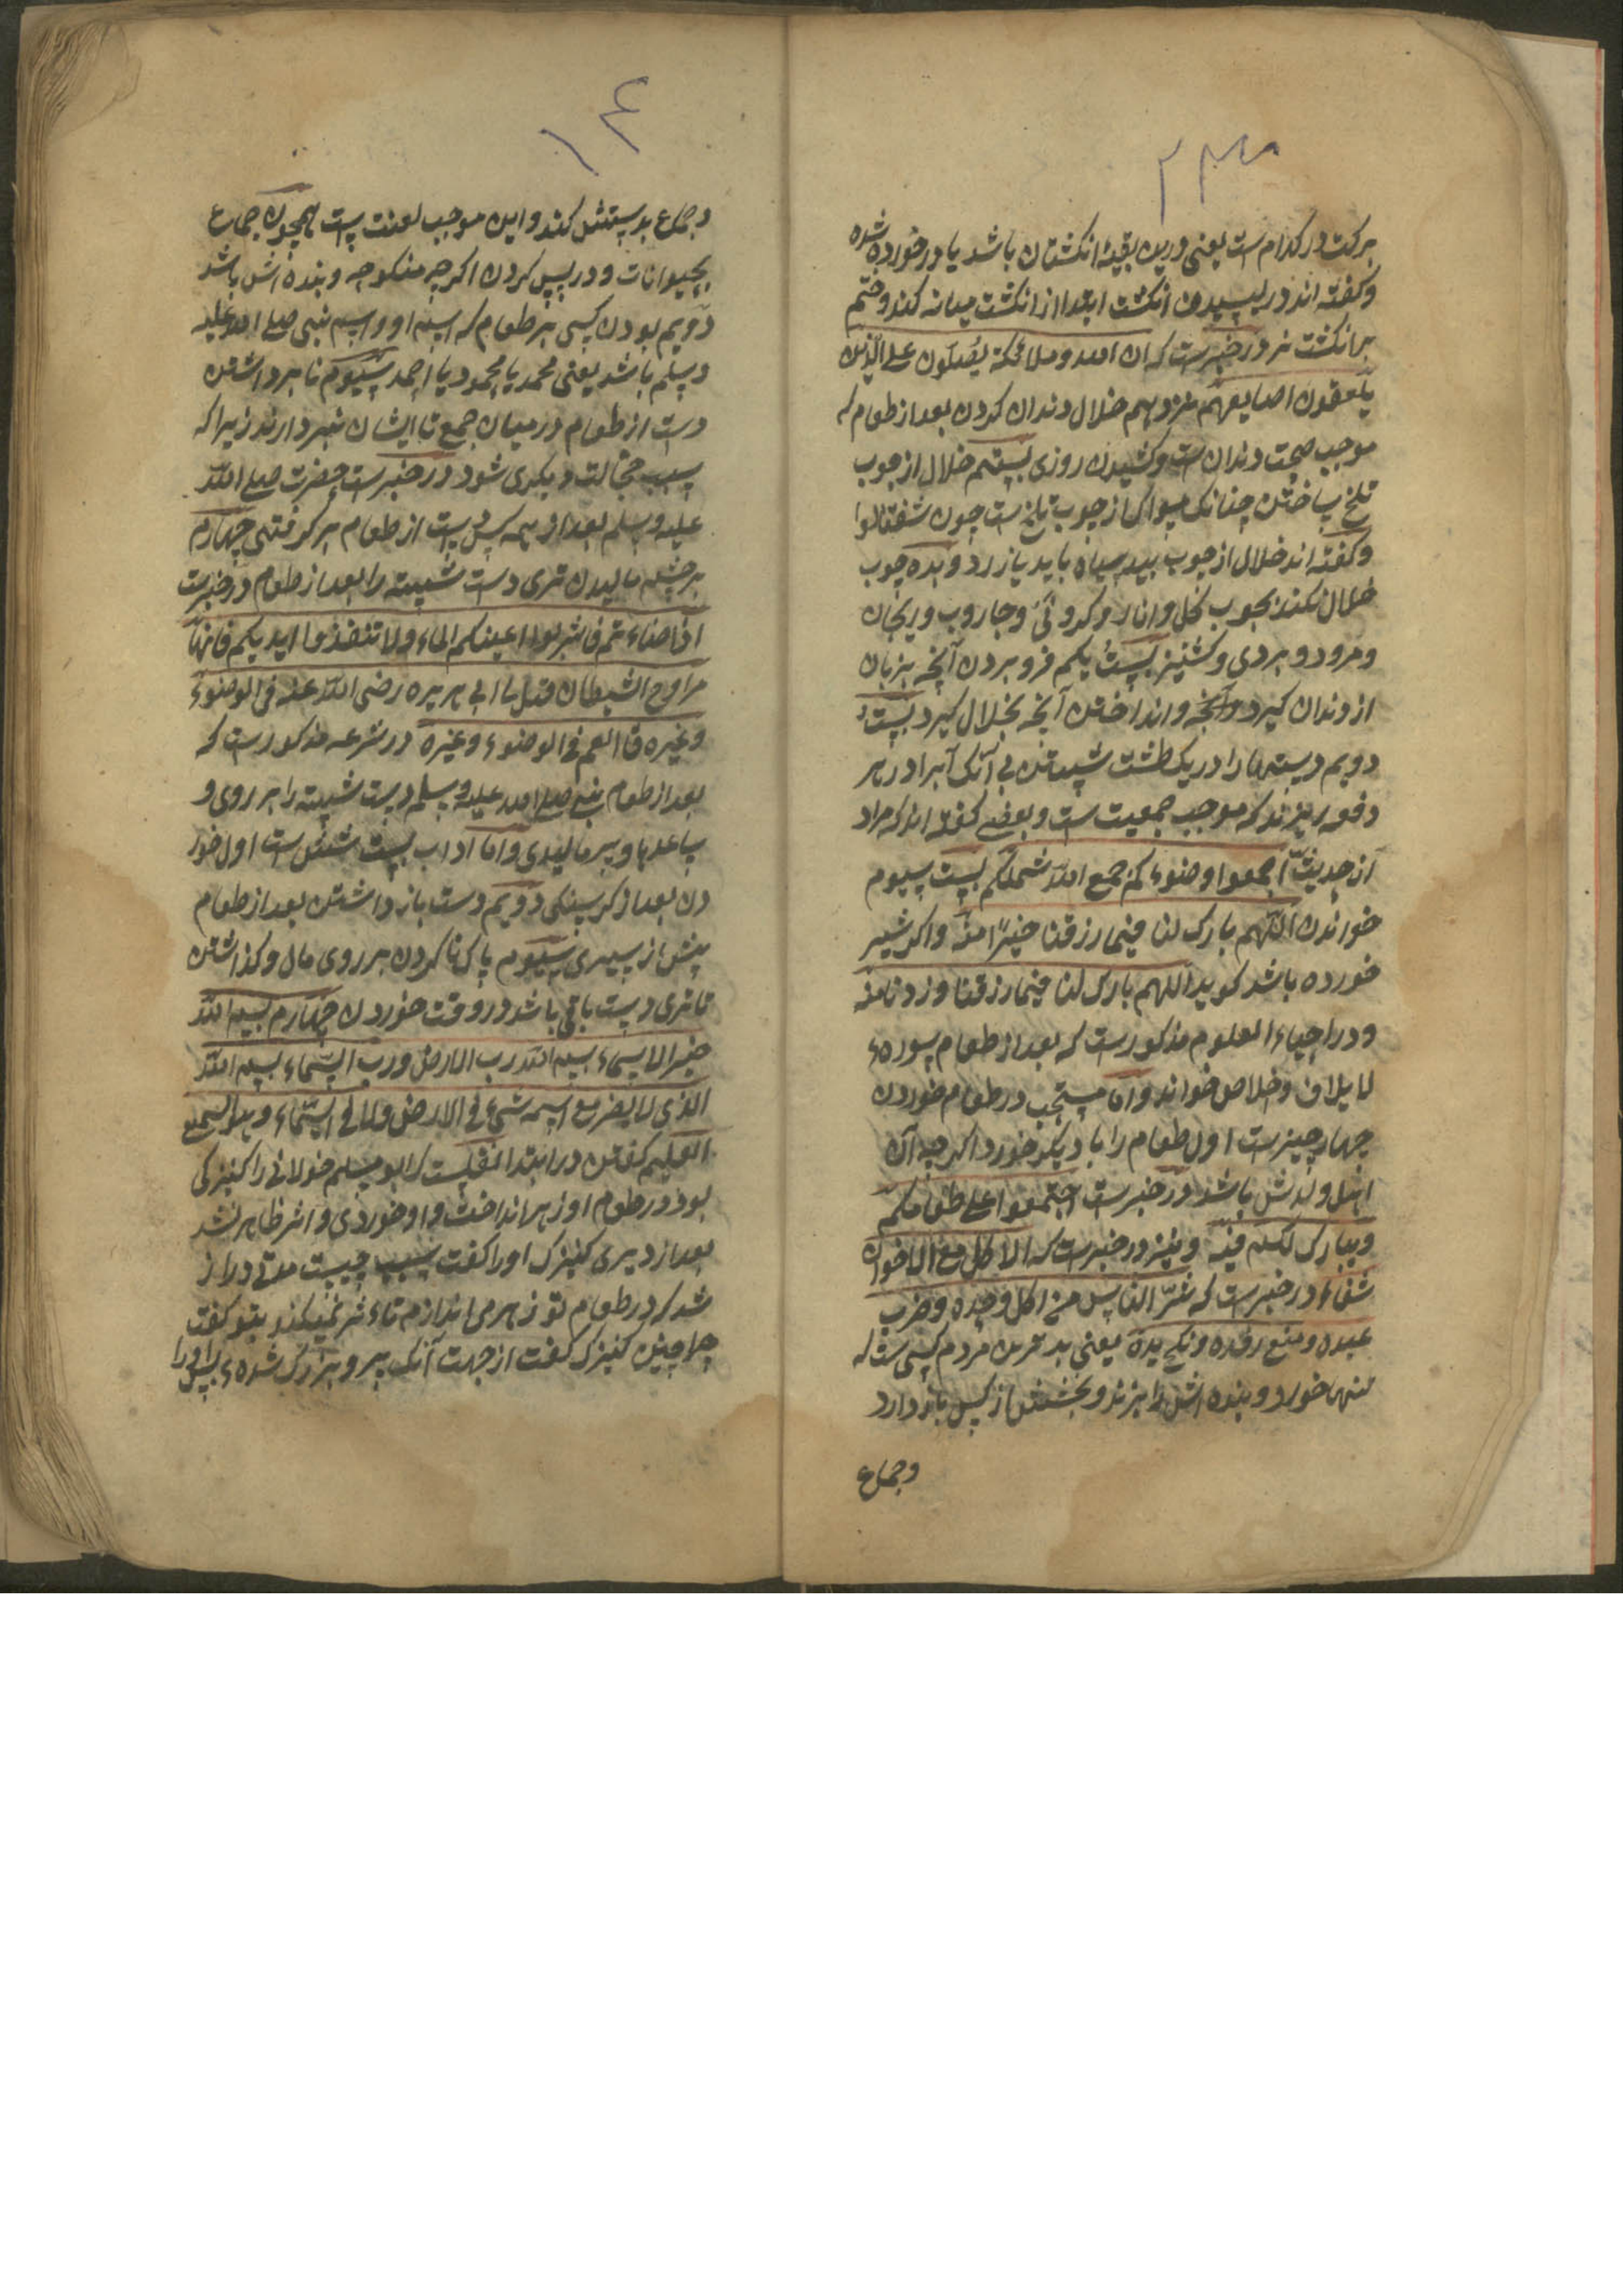 ۲۳
برکت در کدام ست یعنی درین بقیهٔ انکشتان باشد یا در خورده شده
و کفته اند در لیسیدن انکشت ابتدا از انکشت میانه کند و ختم
بر انکشت نر در خبرست که ان الله وملائکته یصلون علی الذین
یلعقون اصابعهم نزدهم خلال دندان کردن بعد از طعام که
موجب صحت دندان ست و کشیدن روزی بیستم خلال از چوب
تلخ ساختن چنانک مسواک از چوب تلخ ست چون شفتالوا
و کفته اند خلال از چوب بید سیاه باید یا زرد و بده چوب
خلال نکند بچوب نخل و انار و کدو و نی و جاروب و ریحان
و مرود و بردی و کشنیز بیست یکم فرو بردن آنچه بزبان
از دندان کیرد و انداختن آنچه بخلال کیرد بیست
دویم دستها را در یک طشت شستن بی آنک آبرا در هر
دفعه ریزند که موجب جمعیت ست و بعضی کفته اند که مراد
از حدیث اجمعوا وضوءکم جمع الله شملکم بیست سیوم
خواندن اللهم بارک لنا فیما رزقنا خیرا منه و اکر شیر
خورده باشد کوید اللهم بارک لنا فیما رزقنا وزدنا منه
و در احیاء العلوم مذکورست که بعد از طعام سورهء
لایلاف و اخلاص خواند و اما مستحب در طعام خوردن
چهار چیزست اول طعام را با دیکر خورد اکر چه آن
اهل و ولدش باشد در خبرست اجتمعوا علی طعامکم
ویبارک لکم فیه و نیز در خبرست که الاکل مع الاخوان
شفاء در خبرست که شر الناس من اکل وحده وضرب
عبده ومنع رفده ونکح یده یعنی بدترین مردم کسی ست که
تنها خورد و بنده اش را بزند و بخشش از کس باز دارد
وجماع
۱۴
وجماع بدستش کند و این موجب لعنت ست همچون جماع
بحیوانات و در پس کردن اکرچه منکوحه و بنده اش باشد
دویم بودن کسی بر طعام که اسم او و اسم نبی صلی الله علیه
وسلم باشد یعنی محمد یا محمود یا احمد سیوم نا برداشتن
دست از طعام در میان جمع تا ایشان نبردارند زیرا که
سبب خجالت دیکری شود در خبرست حضرت صلی الله
علیه وسلم بعد از همه کس دست از طعام بر کرفتی چهارم
بر چشم مالیدن تری دست شسته را بعد از طعام در خبرست
اذا فاشربوا اعینکم الماء ولا تنفضوا ایدیکم فانها
مراوح الشیطان قیل یا ابی هریره رضی الله عنه فی الوضوء
وغیره قال نعم فی الوضوء وغیره در شرعه مذکورست که
بعد از طعام نبی صلی الله علیه وسلم دست شسته را بر روی و
ساعدها و سر مالیدی و اما اداب بیست شش ست اول خور
دن بعد از کرسنکی دویم دست باز داشتن بعد از طعام
پیش از سیری سیوم پاک نا کردن بر روی مال و کذاشتن
تا تری دست باقی باشد در وقت خوردن چهارم بسم الله
خیر الاسماء بسم الله رب الارض ورب السماء بسم الله
الذی لا یضر مع اسمه شیء فی الارض ولا فی السماء وهو السمیع
العلیم کفتن در ابتدا نقلست که ابو مسلم خولانی را کنیزکی
بود در طعام او زهر انداخت و او خوردی و اثر ظاهر نشد
بعد از دیری کنیزک او را کفت سبب چیست مدتی دراز
شد که در طعام تو زهر می اندازم تاءثر نمیکند بتو کفت
چرا چنین کنیزک کفت از جهت آنک پیر و بزرک شدهء